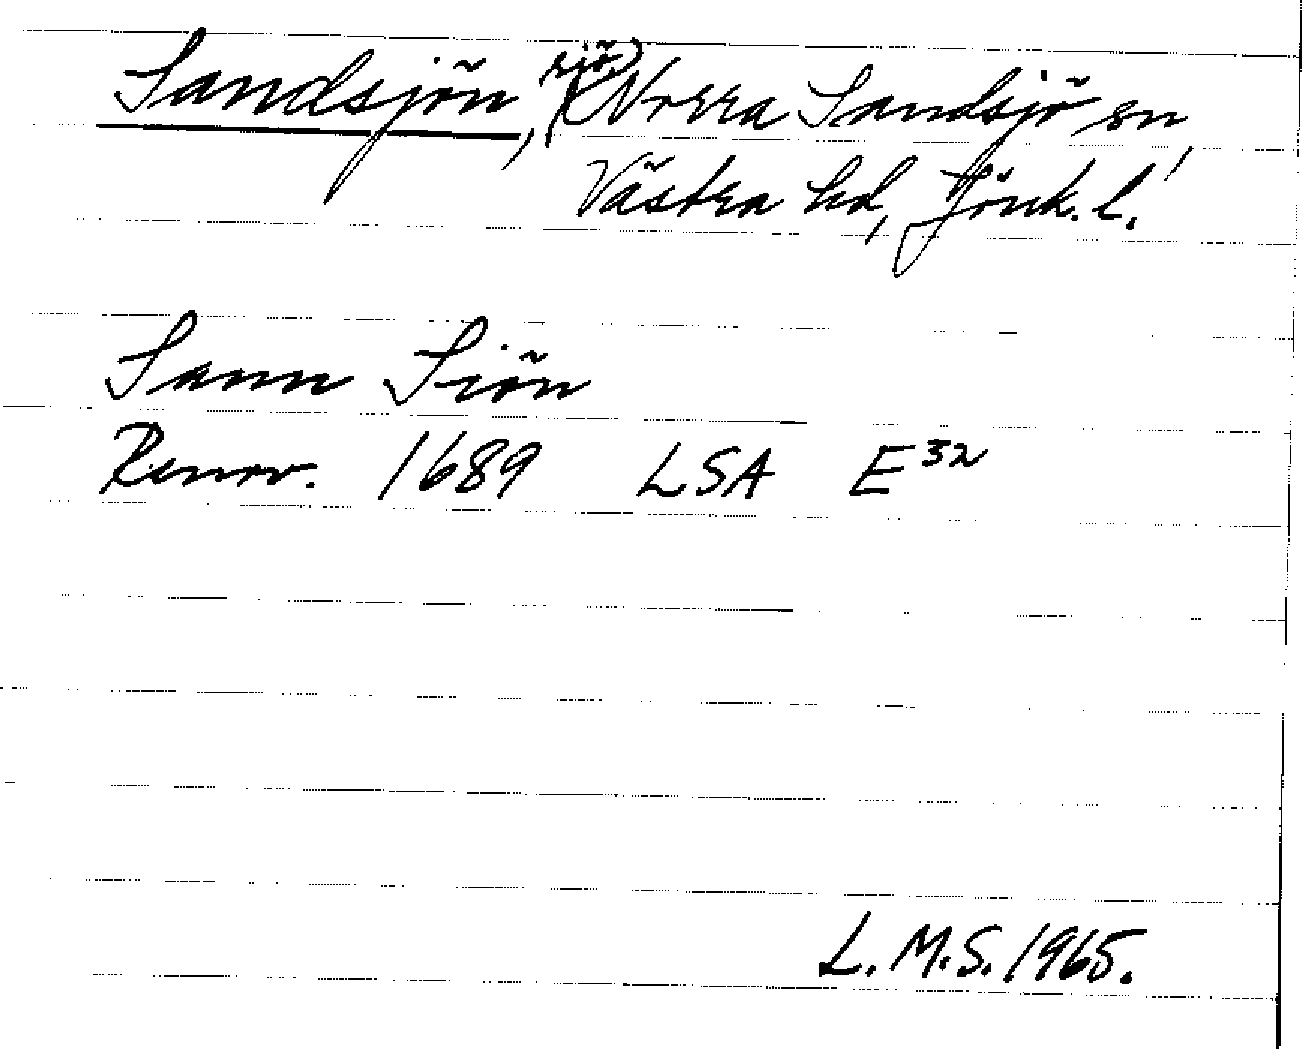 Sandsjön, sjö, Norra Sandsjö sn,
Västra hd, Jönk. l.
Sann Siön
Renov. 1689 LSA E32
L.M.S. 1965.